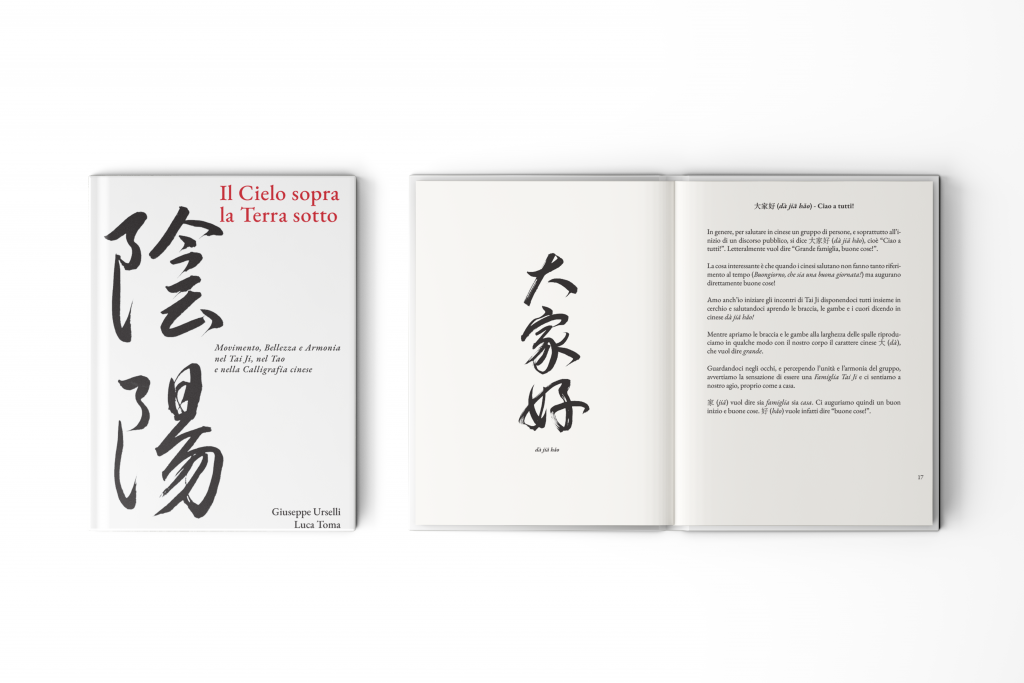 陰
陽
Il Cielo sopra
la Terra sotto
Movimento, Bellezza e Armonia
nel Tai Ji, nel Tao
e nella Calligrafia cinese
Giuseppe Urselli
Luca Toma
大
家
好
dà jiā hǎo
大家好 (dà jiā hǎo) - Ciao a tutti!
In genere, per salutare in cinese un gruppo di persone, e soprattutto all'i-
nizio di un discorso pubblico, si dice 大家好 (dà jiā hǎo), cioè “Ciao a
tutti!”. Letteralmente vuol dire “Grande famiglia, buone cose!”.
La cosa interessante è che quando i cinesi salutano non fanno tanto riferi-
mento al tempo (Buongiorno, che sia una buona giornata!) ma augurano
direttamente buone cose!
Amo anch'io iniziare gli incontri di Tai Ji disponendoci tutti insieme in
cerchio e salutandoci aprendo le braccia, le gambe e i cuori dicendo in
cinese dà jiā hǎo!
Mentre apriamo le braccia e le gambe alla larghezza delle spalle riprodu-
ciamo in qualche modo con il nostro corpo il carattere cinese 大 (dà),
che vuol dire grande.
Guardandoci negli occhi, e percependo l'unità e l'armonia del gruppo,
avvertiamo la sensazione di essere una Famiglia Tai Ji e ci sentiamo a
nostro agio, proprio come a casa.
家 (jiā) vuol dire sia famiglia sia casa. Ci auguriamo quindi un buon
inizio e buone cose. 好 (hǎo) vuole infatti dire “buone cose!”.
17